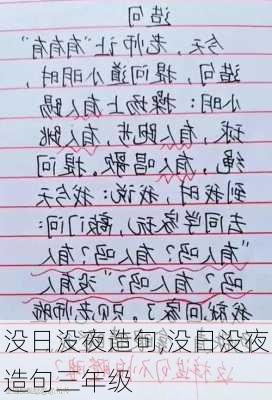 造句
今天，老师让"有有有"
造句，提问道小明时，
小明：操场上有人踢
球，有人跑步，有人跳
绳，有人唱歌。提问
到我时，我说：我今天
去同学家玩，敲门问：
"有人吗？有人吗？有人
吗？有人吗？"没有人
我就回家了。只见老师
没日没夜造句,没日没夜
造句三年级